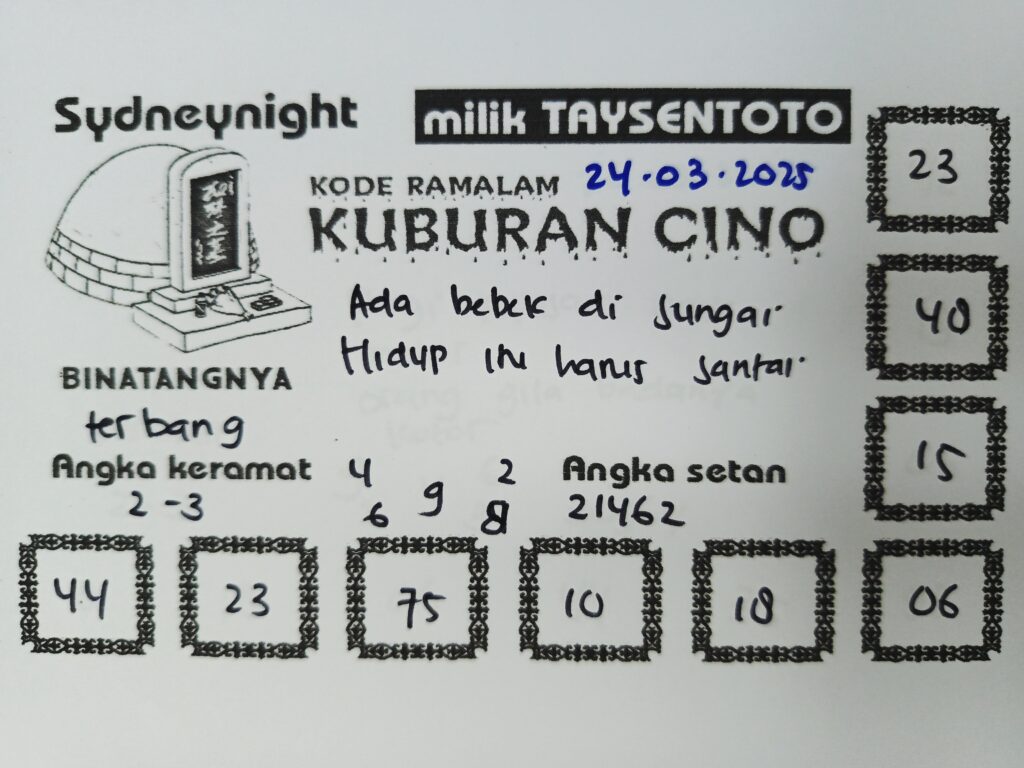 Sydneynight
milik TAYSENTOTO
23
KODE RAMALAM 24.03.2025
KUBURAN CINO
Ada bebek di sungai
Hidup ini harus santai
40
BINATANGNYA
terbang
15
Angka keramat
2-3
4 2
9
6 8
Angka setan
21462
44 23 75 10 18 06